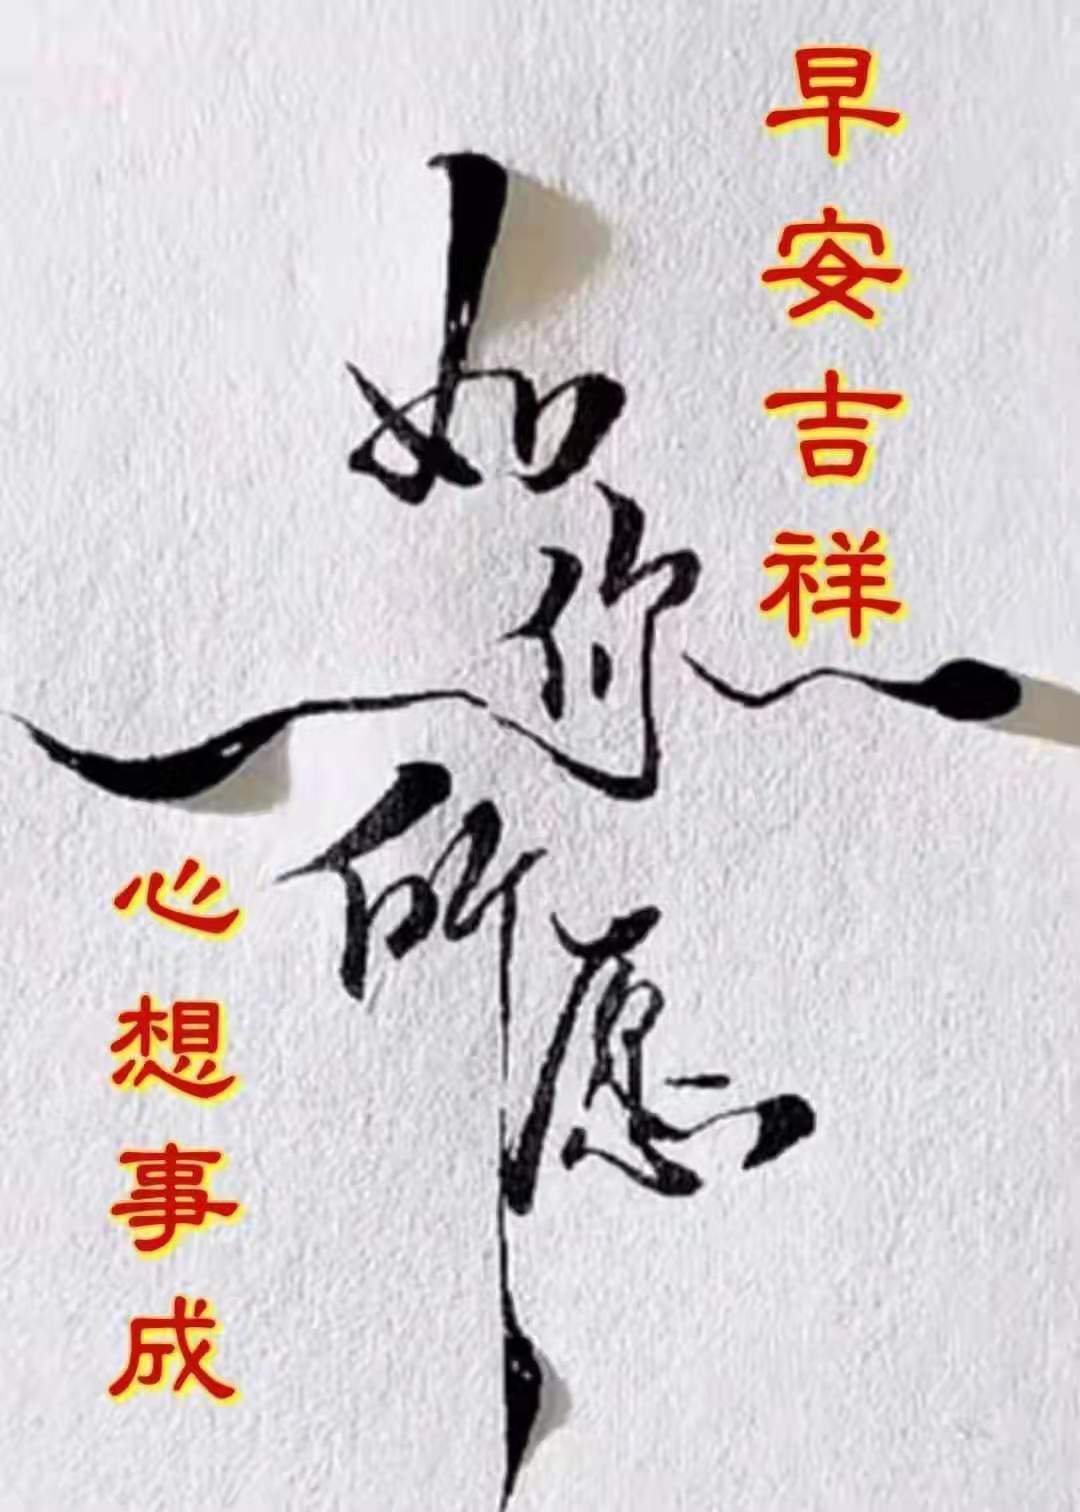 早安吉祥
如你所愿
心想事成